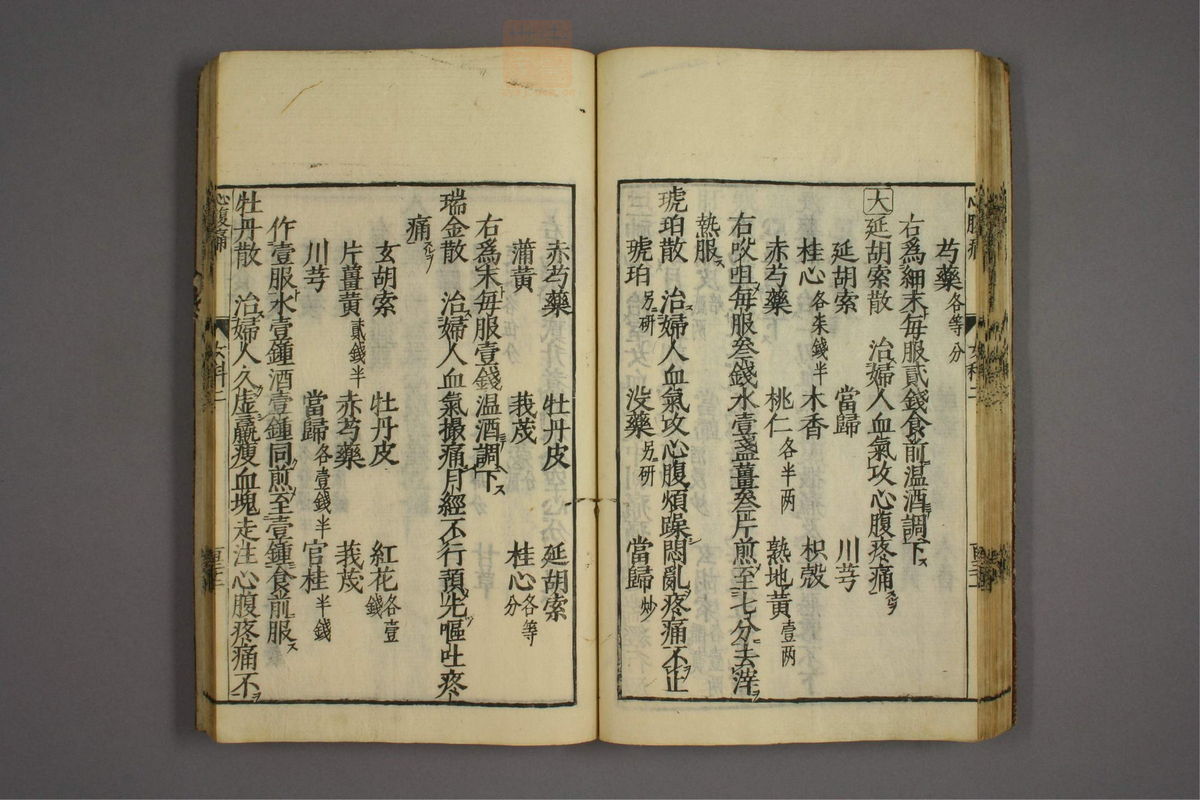 芍藥各等分
右爲細末毎服貳錢食前温酒調下ス
大延胡索散 治婦人血氣攻心腹疼痛
延胡索 當歸 川芎
桂心各柒錢半 木香 枳殻
赤芍藥 桃仁各半两 熟地黄壹两
右㕮咀毎服叁錢水壹盞薑叁片煎至七分去滓
熱服ス
琥珀散 治婦人血氣攻心腹煩躁悶亂疼痛不止
琥珀另研 没藥另研 當歸炒
赤芍藥 牡丹皮 延胡索
蒲黄 莪茂 桂心各等分
右爲末毎服壹錢温酒調下ス
瑞金散 治婦人血氣撮痛月經不行預先嘔吐疼
痛
玄胡索 牡丹皮 紅花各壹錢
片薑黄貳錢半 赤芍藥 莪茂
川芎 當歸各壹錢半 官桂半錢
作壹服水壹鍾酒壹鍾同煎至壹鍾食前服ス
牡丹散 治婦人久虚羸瘦血塊走注心腹疼痛不